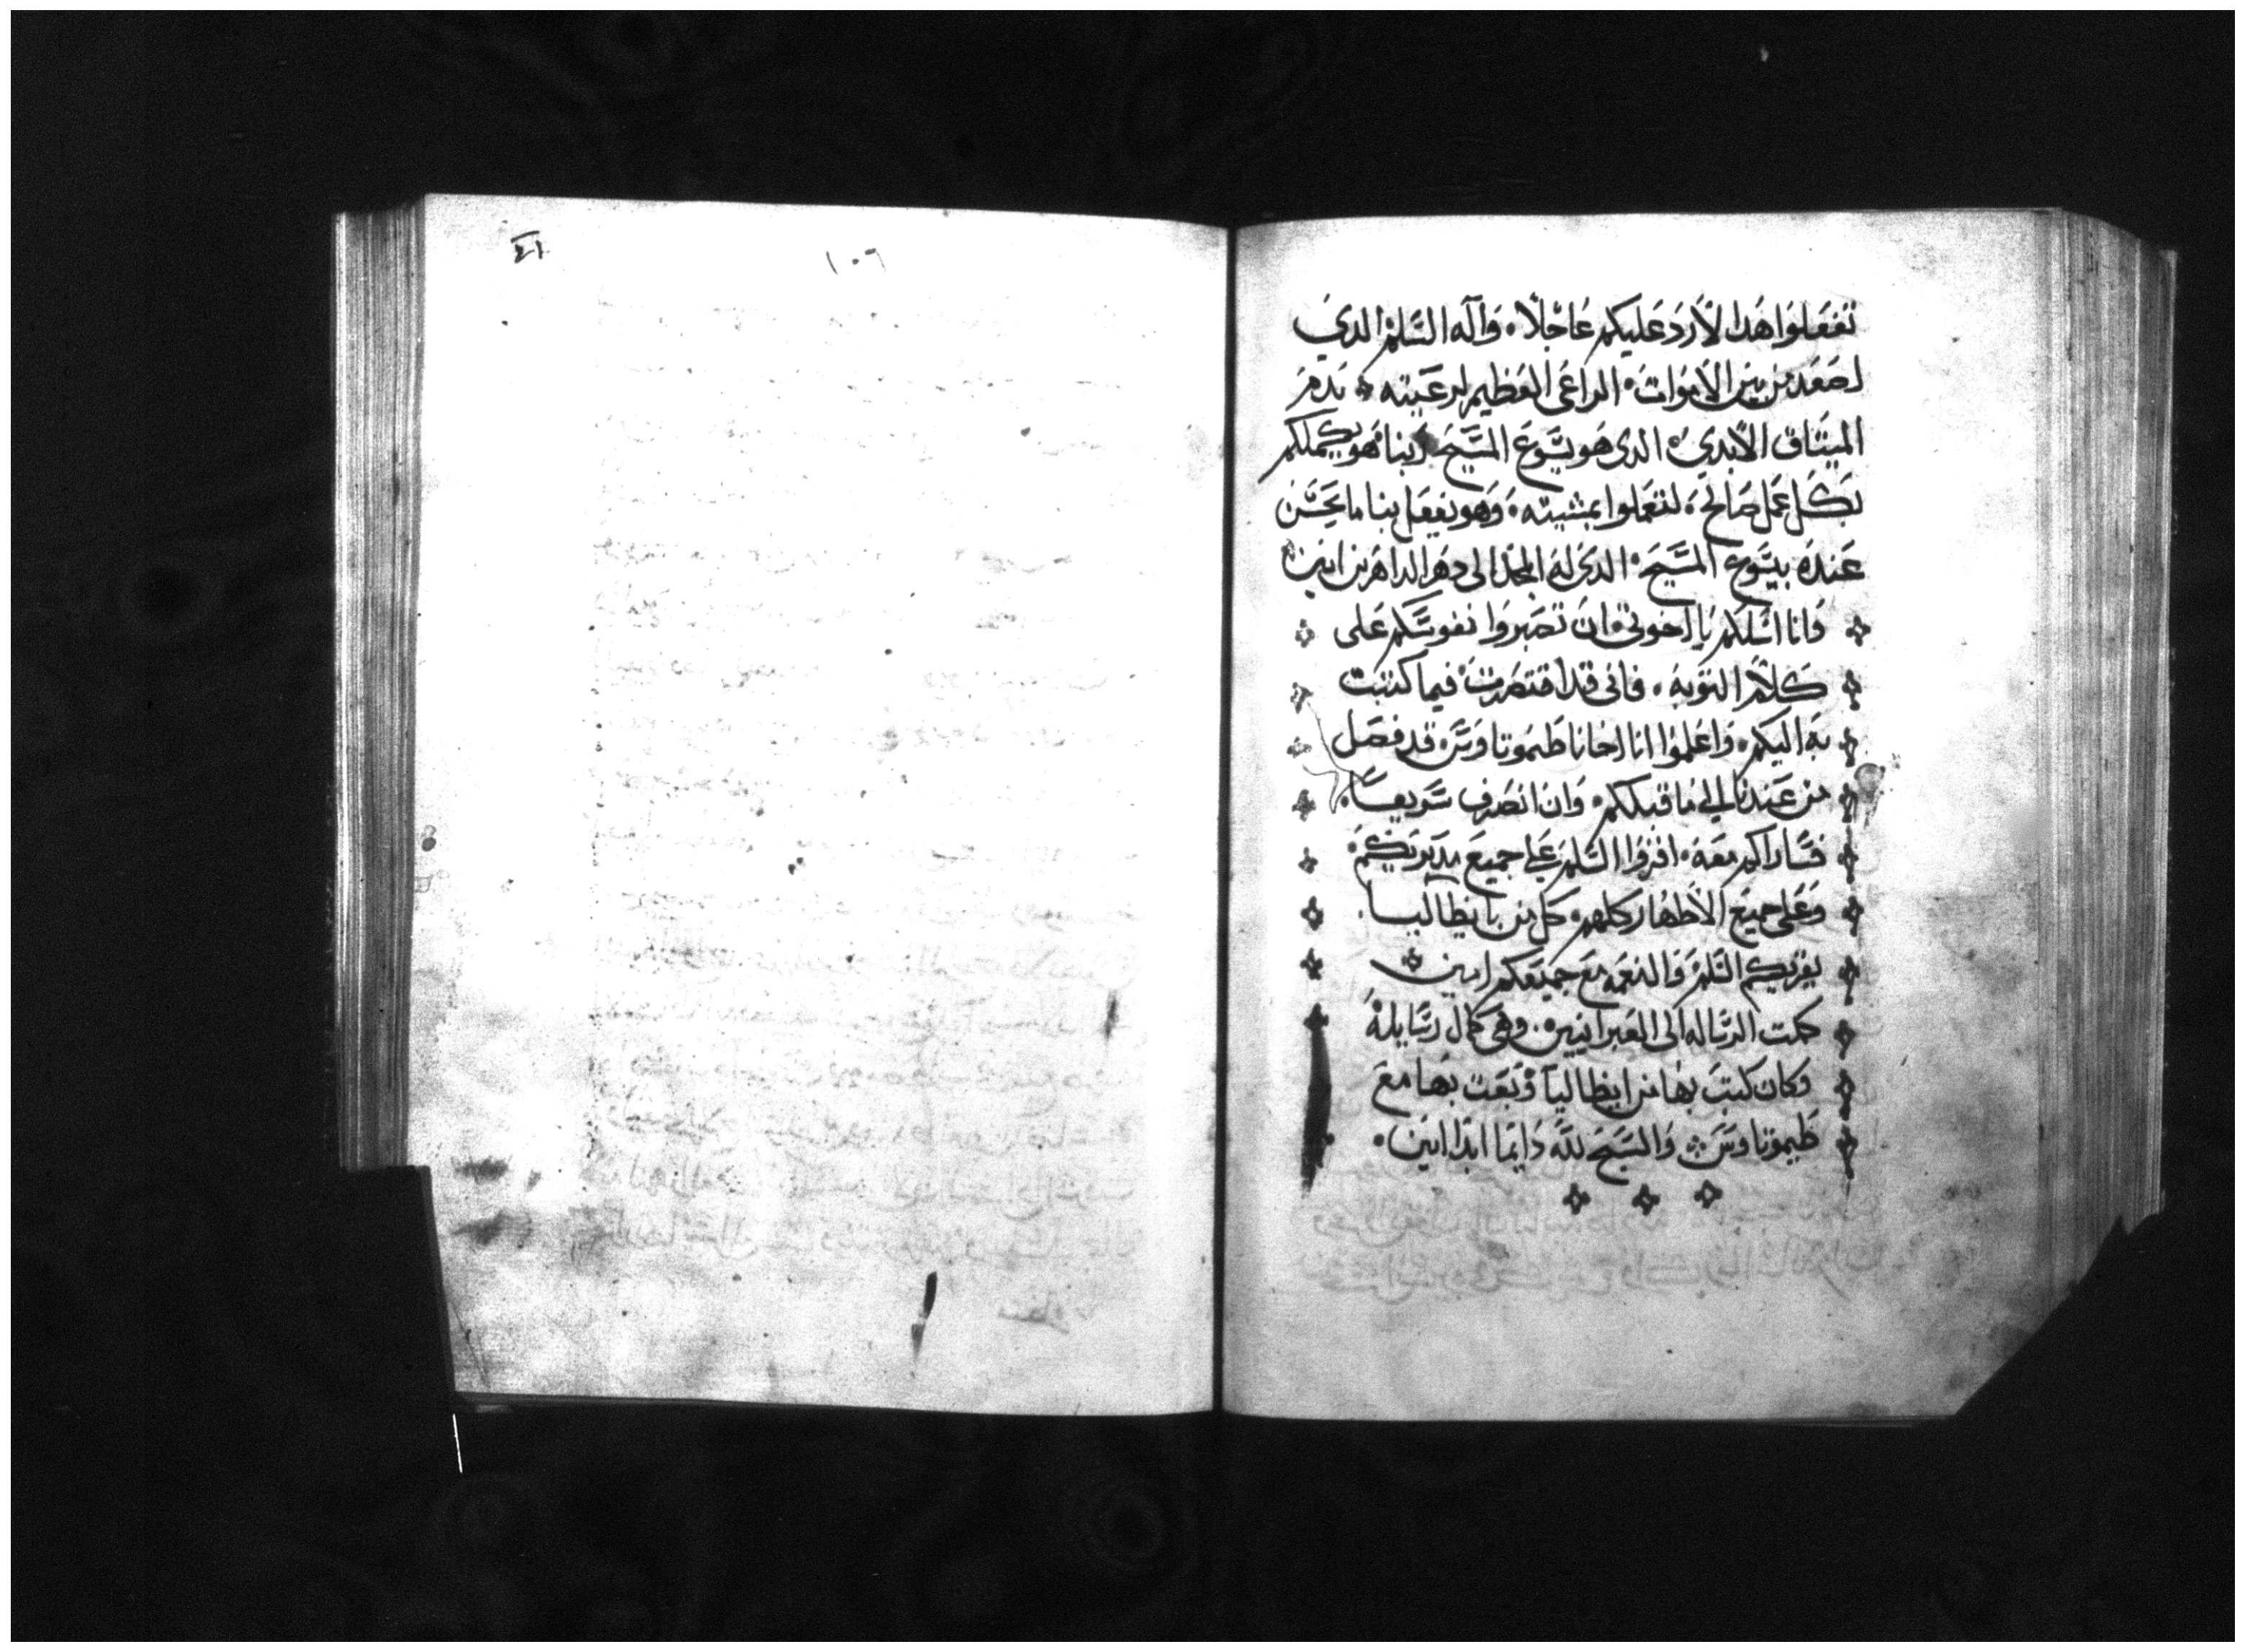 تفعلوا هدا لارد عليكم عاجلا٠ واله السلم الدي
اصعد من بين الاموات٠ الراعي العظيم لرعيته ٠ بدم
الميتاق الابدي٠ الدي هو يسوع المسيح ربنا٠ هو يكملكم
بكل عمل صالح٠ لتعملوا بمشيته٠ وهو يفعل بنا ما يحسن
عنده بيسوع المسيح٠ الدي له المجد الى دهر الداهرين امين
وانا اسلكم يا اخوتي٠ ان تصبروا نفوسكم على
كلام التوبه٠ فاني قد اقتصرت فيما كتبت
به اليكم٠ واعلموا ان اخانا طيموتاوس٠ قد فصل
من عندنا الى ما قبلكم٠ وان انصرف سريعا٠
فساراكم معه٠ اقروا السلم على جميع مدبريكم٠
وعلى جميع الاطهار كلهم٠ كل من بايطاليا
يقريكم السلم والنعمه مع جميعكم امين
كملت الرساله الى العبرانيين٠ وهي كمال رسايله
وكان كتب بها من ايطاليا وبعت بها مع
طيموتاوس والسبح لله دايما ابدا امين٠
١٠٦